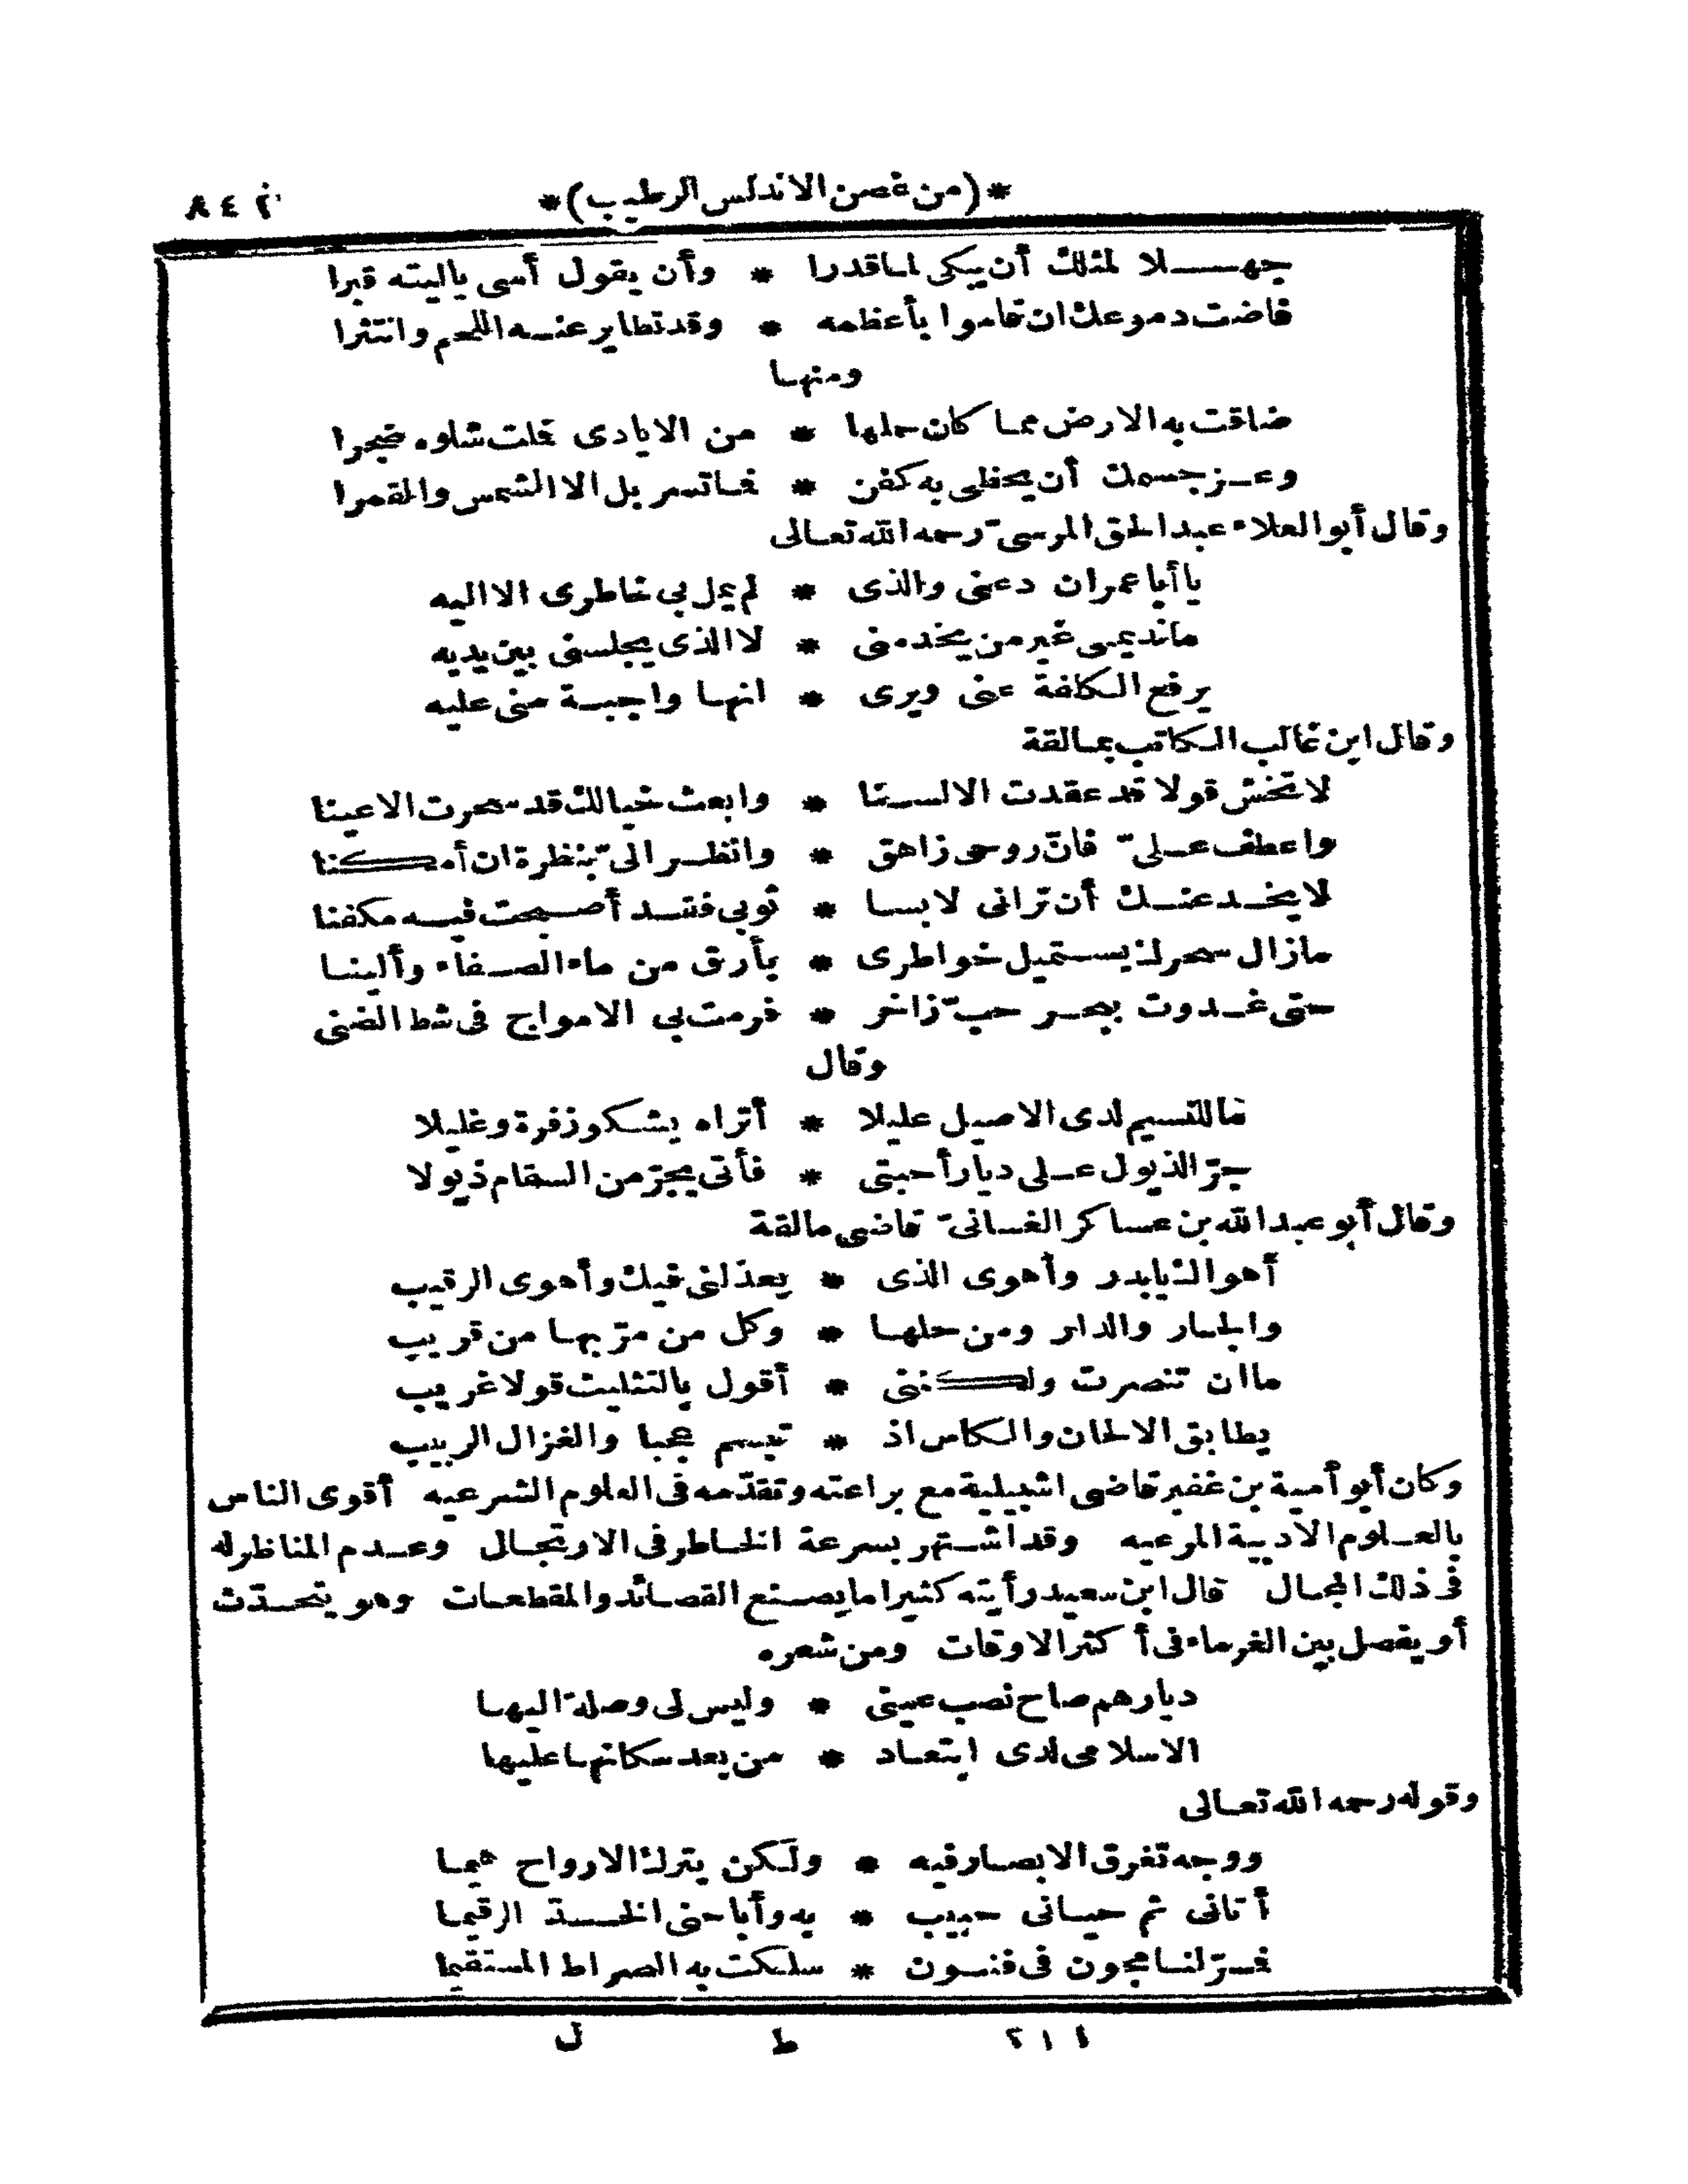 *(من غصن الاندلس الرطيب)*
جهـــلا لمثلك أن يبكى لما قدرا * وأن يقول أسى ياليته قبرا
فاضت دموعك ان قاموا بأعظمه * وقد تطاير عنه اللحم وانتثرا
ومنها
ضاقت به الارض مما كان حملها * من الايادى فملت شلوه ضجرا
وعز جسمك أن يحظى به كفن * فما تسربل الا الشمس والقمرا
وقال أبو العلاء عبد الحق المرسىّ رحمه الله تعالى
يا أبا عمران دعنى والذى * لم يمل بى خاطرى الا اليه
ما نديمى غير من يخدمنى * لا الذى يجلسنى بين يديه
يرفع الكلفة عنى ويرى * انها واجبة منى عليه
وقال ابن غالب الكاتب بمالقة
لا تخش قولا قد عقدت الالسنا * وابعث خيالك قد سحرت الاعينا
واعطف علىّ فانّ روحى زاهق * وانظر الىّ بنظرة ان أمكنا
لا يخدعنك أن ترانى لابسا * ثوبى فقد أصبحت فيه مكفنا
مازال سحرك يستميل خواطرى * بأرق من ماء الصفاء وألينا
حتى غدوت ببحر حبّ زاخر * فرمت بى الامواج فى شط الضنى
وقال
ما للنسيم لدى الاصيل عليلا * أتراه يشكو زفرة وغليلا
جرّ الذيول على ديار أحبتى * فأتى يجرّ من السقام ذيولا
وقال أبو عبد الله بن عساكر الغسانىّ قاضى مالقة
أهواك يا بدر وأهوى الذى * يعذلنى فيك وأهوى الرقيب
والجار والدار ومن حلها * وكل من مرّ بها من قريب
ما ان تنصرت ولكننى * أقول بالتثليث قولا غريب
يطابق الالحان والكاس اذ * تبسم عجبا والغزال الربيب
وكان أبو أمية بن عفير قاضى اشبيلية مع براعته وتقدّمه فى العلوم الشرعيه أقوى الناس
بالعلوم الادبية المرعيه وقد اشتهر بسرعة الخاطر فى الارتجال وعدم المناظر له
فى ذلك المجال قال ابن سعيد ورأيته كثيرا ما يصنع القصائد والمقطعات وهو يتحدّث
أو يفصل بين الغرماء فى أكثر الاوقات ومن شعره
ديارهم صاح نصب عينى * وليس لى وصلة اليها
الا سلامى لدى ابتعاد * من بعد سكانها عليها
وقوله رحمه الله تعالى
ووجه تغرق الابصار فيه * ولكن يترك الارواح هيما
أتانى ثم حيانى حبيب * به وأباحنى الخدّ الرقيما
فمرّ لنا مجون فى فنون * سلكت به الصراط المستقيما
٢١١ ط ل